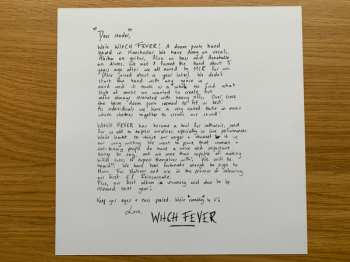 "Dear reader,
We're WITCH FEVER! A doom punk band
based in Manchester. We have Amy on vocals,
Alisha on guitar, Alex on bass and Annabelle
on drums. We met & formed the band about 5
years ago after we all moved to MCR for uni
(Alex joined about a year later). We didn't
start the band with any genre in
mind and it took us a while to find what
kind of music we wanted to create, but
after always with heavy riffs
the term 'doom punk' seemed to fit us best!
As individuals we have a very varied taste in music
which clashes together to create our sound!
WITCH FEVER has become a tool for catharsis, used
for us all to express ourselves especially in live performances
We've learnt to our anger & channel it in
our song writing. We want to prove that women &
non-binary people do have a voice and important
things to say, and we are capable of making
wild music & express themselves with. We will be
heard!! We have been fortunate enough to sign to
Music For Nations and are in the process of releasing
our first EP 'Reincarnate'.
Plus, our first album is and due to be
released next year!
Keep your eyes & ears peeled. We're 'coming' 4 U!
Love,
WITCH FEVER